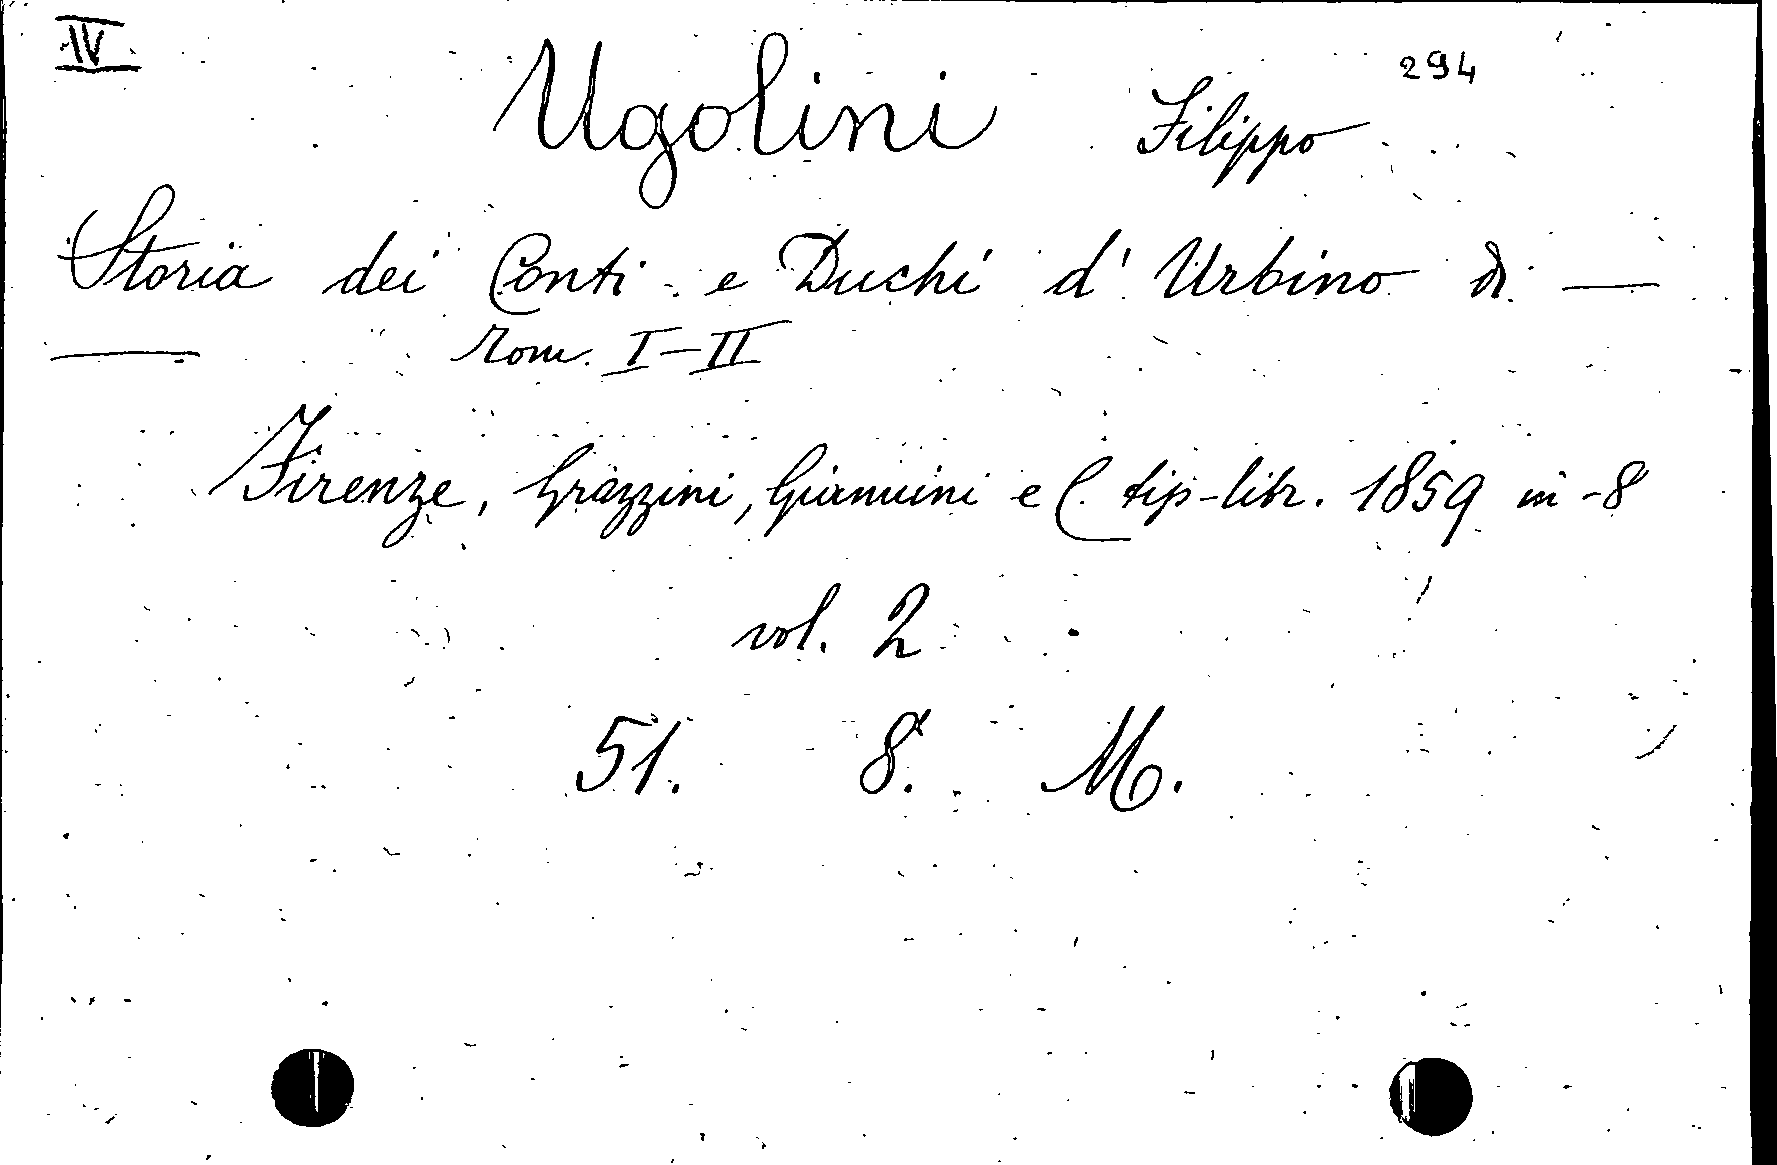 IV
294
Ugolini Filippo
Storia dei Conti e Duchi d' Urbino di —
— Tom. I-II
Firenze, Grazzini, Giannini e C. tip-libr. 1859 in-8
vol. 2
51. 8. M.